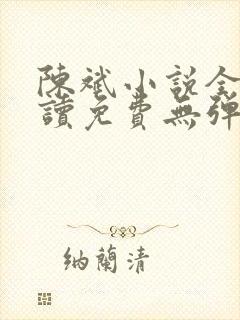 陳斌小說全
讀免費無彈
納蘭清